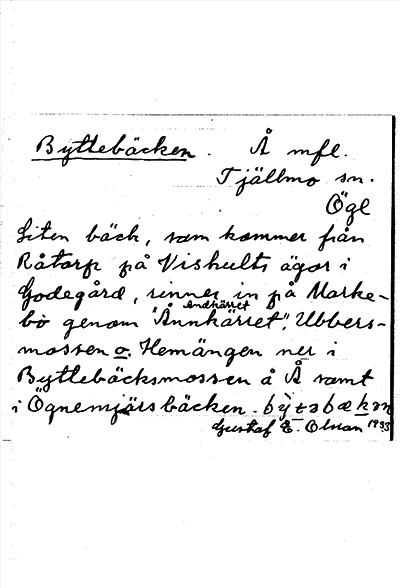 Byttebäcken. Å mfl.
Tjällmo sn.
Ögl
Liten bäck, som kommer från
Råtorp på Viskults ägor i
Godegård, rinner in på Marke-
andkärret
bo genom "Ånnkärret", Ubbers-
mossen o. Hemängen ner i
Byttebäcksmossen å Å samt
i Ögnemjärsbäcken.
Gustaf E. Olsson 1933